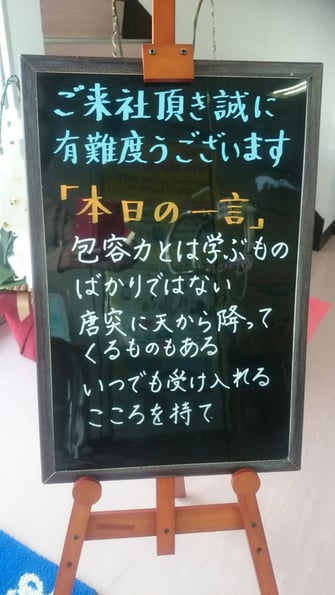 ご来社頂き誠に
有難度うございます
「本日の一言」
包容力とは学ぶもの
ばかりではない
唐突に天から降って
くるものもある
いつでも受け入れる
こころを持て